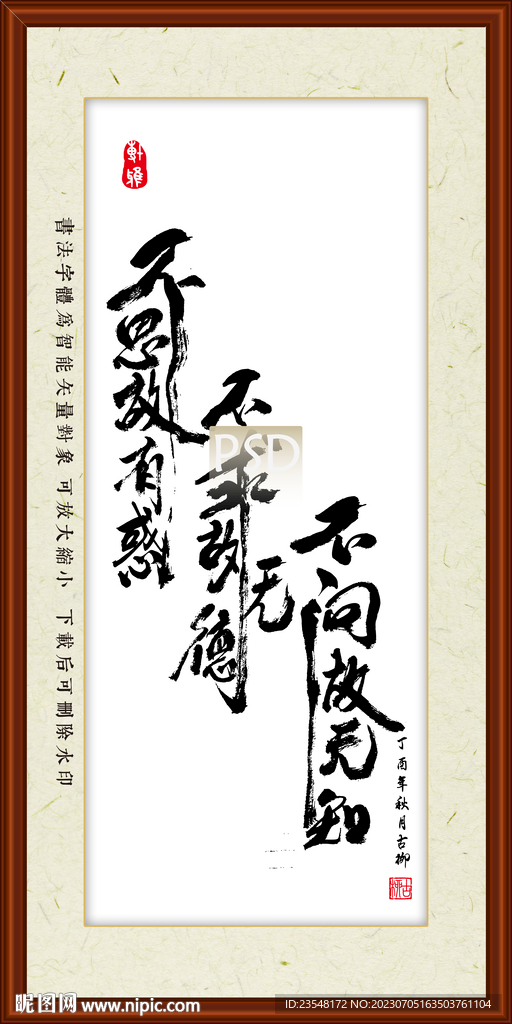 軒雅
不思故有惑
不求故无德
不问故无知
丁酉年秋月古柳
古柳
書法字體為智能矢量對象 可放大縮小 下載后可刪除水印
PSD
昵图网 www.nipic.com
ID:23548172 NO:20230705163503761104